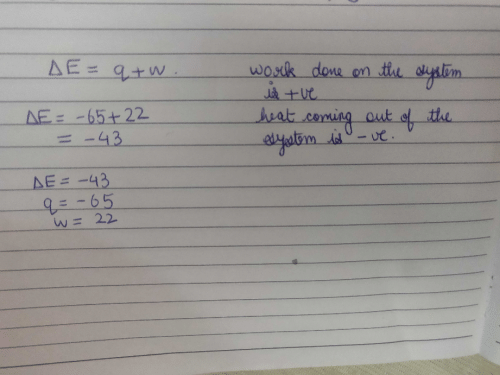 ΔE = q + w.
work done on the system
is +ve
ΔE = -65+22
= -43
heat coming out of the
system is -ve.
ΔE = -43
q = -65
w = 22